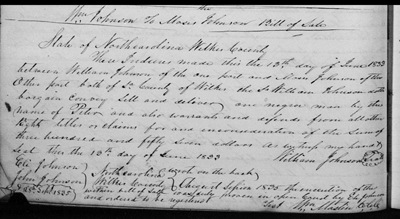 the
Wm Johnson To Moses Johnson Bill of Sale
State of Northcarolina Wilkes County
This Indenture made this the 13th day of June 1833
between William Johnson of the one part and Moses Johnson of the
Other part both of Sd County of Wilkes the Sd William Johnson doth
bargain Convey Sell and deliver one negro man by the
name of Peter and also warrants and defends from all other
Right titles or claims for and in consideration of the Sum of
three hundred and fifty Seven dollars as witness my hand
Seal this the 13th day of June 1833 William Johnson Seal
Eli Johnson
John Johnson
North carolina
Wilkes County
August Session 1835 The execution of this
within bill of Sale was duly proven in open Court by Eli Johnson
and ordered to be registered
Test Clerk